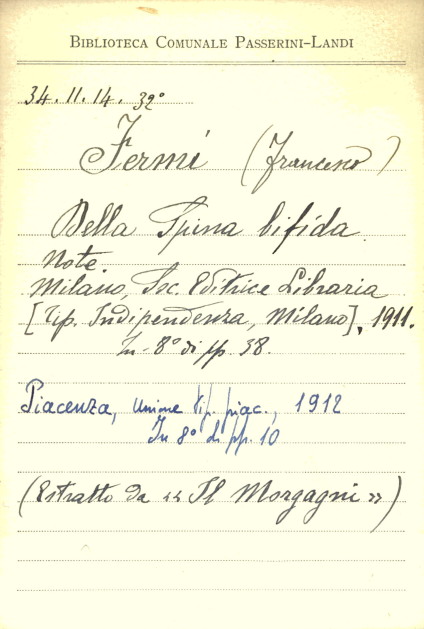 BIBLIOTECA COMUNALE PASSERINI-LANDI
34.11.14. 32°
Fermi (Francesco)
Della Spina bifida.
Note.
Milano, Soc. Editrice Libraria
[Tip. Indipendenza, Milano], 1911.
In-8° di pp. 38.
Piacenza, Unione tip. piac., 1912
In 8° di pp. 10
(Estratto da «Il Morgagni»)